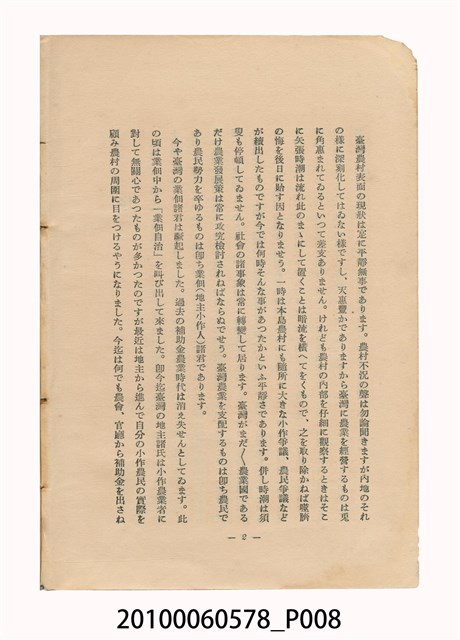 臺灣農村表面の現狀は定に平靜無事であります。農村不況の聲は勿論聞きますが內地のそれ
の樣に深刻化してはゐない樣ですし、天惠豐かでありますから臺灣に農業を經營するものは兎
に角惠まれてゐるといつて差支ありません。けれども農村の內部を仔細に觀察するときはそこ
に矢張時潮は流れ此のまゝにして置くことは暗流を橫へてをくもので、之を取り除かねば噬臍
の悔を後日に貽す因となりませう。一時は本島農村にも隨所に大きな小作爭議、農民爭議など
が續出したものですが今では何時そんな事があつたかといふ平靜さであります。併し時潮は須
臾も停頓してゐません。社會の諸事象は常に轉變して居ります。臺灣がまだ〳〵農業國である
だけ農業發展策は常に攻究檢討されねばならぬでせう。臺灣農業を支配するものは卽ち農民で
あり農民勢力を牽ゆるものは卽ち業佃(地主小作人)諸君であります。
今や臺灣の業佃諸君は蹶起しました。過去の補助金農業時代は消え失せんとしてゐます。此
の頃は業佃中から「業佃自治」を叫び出して來ました。卽今迄臺灣の地主諸氏は小作農業者に
對して無關心であつたものが多かつたのですが最近は地主から進んで自分の小作農民の實際を
顧み農村の周圍に目をつけるやうになりました。今迄は何でも農會、官廳から補助金を出さね
— 2 —
20100060578_P008